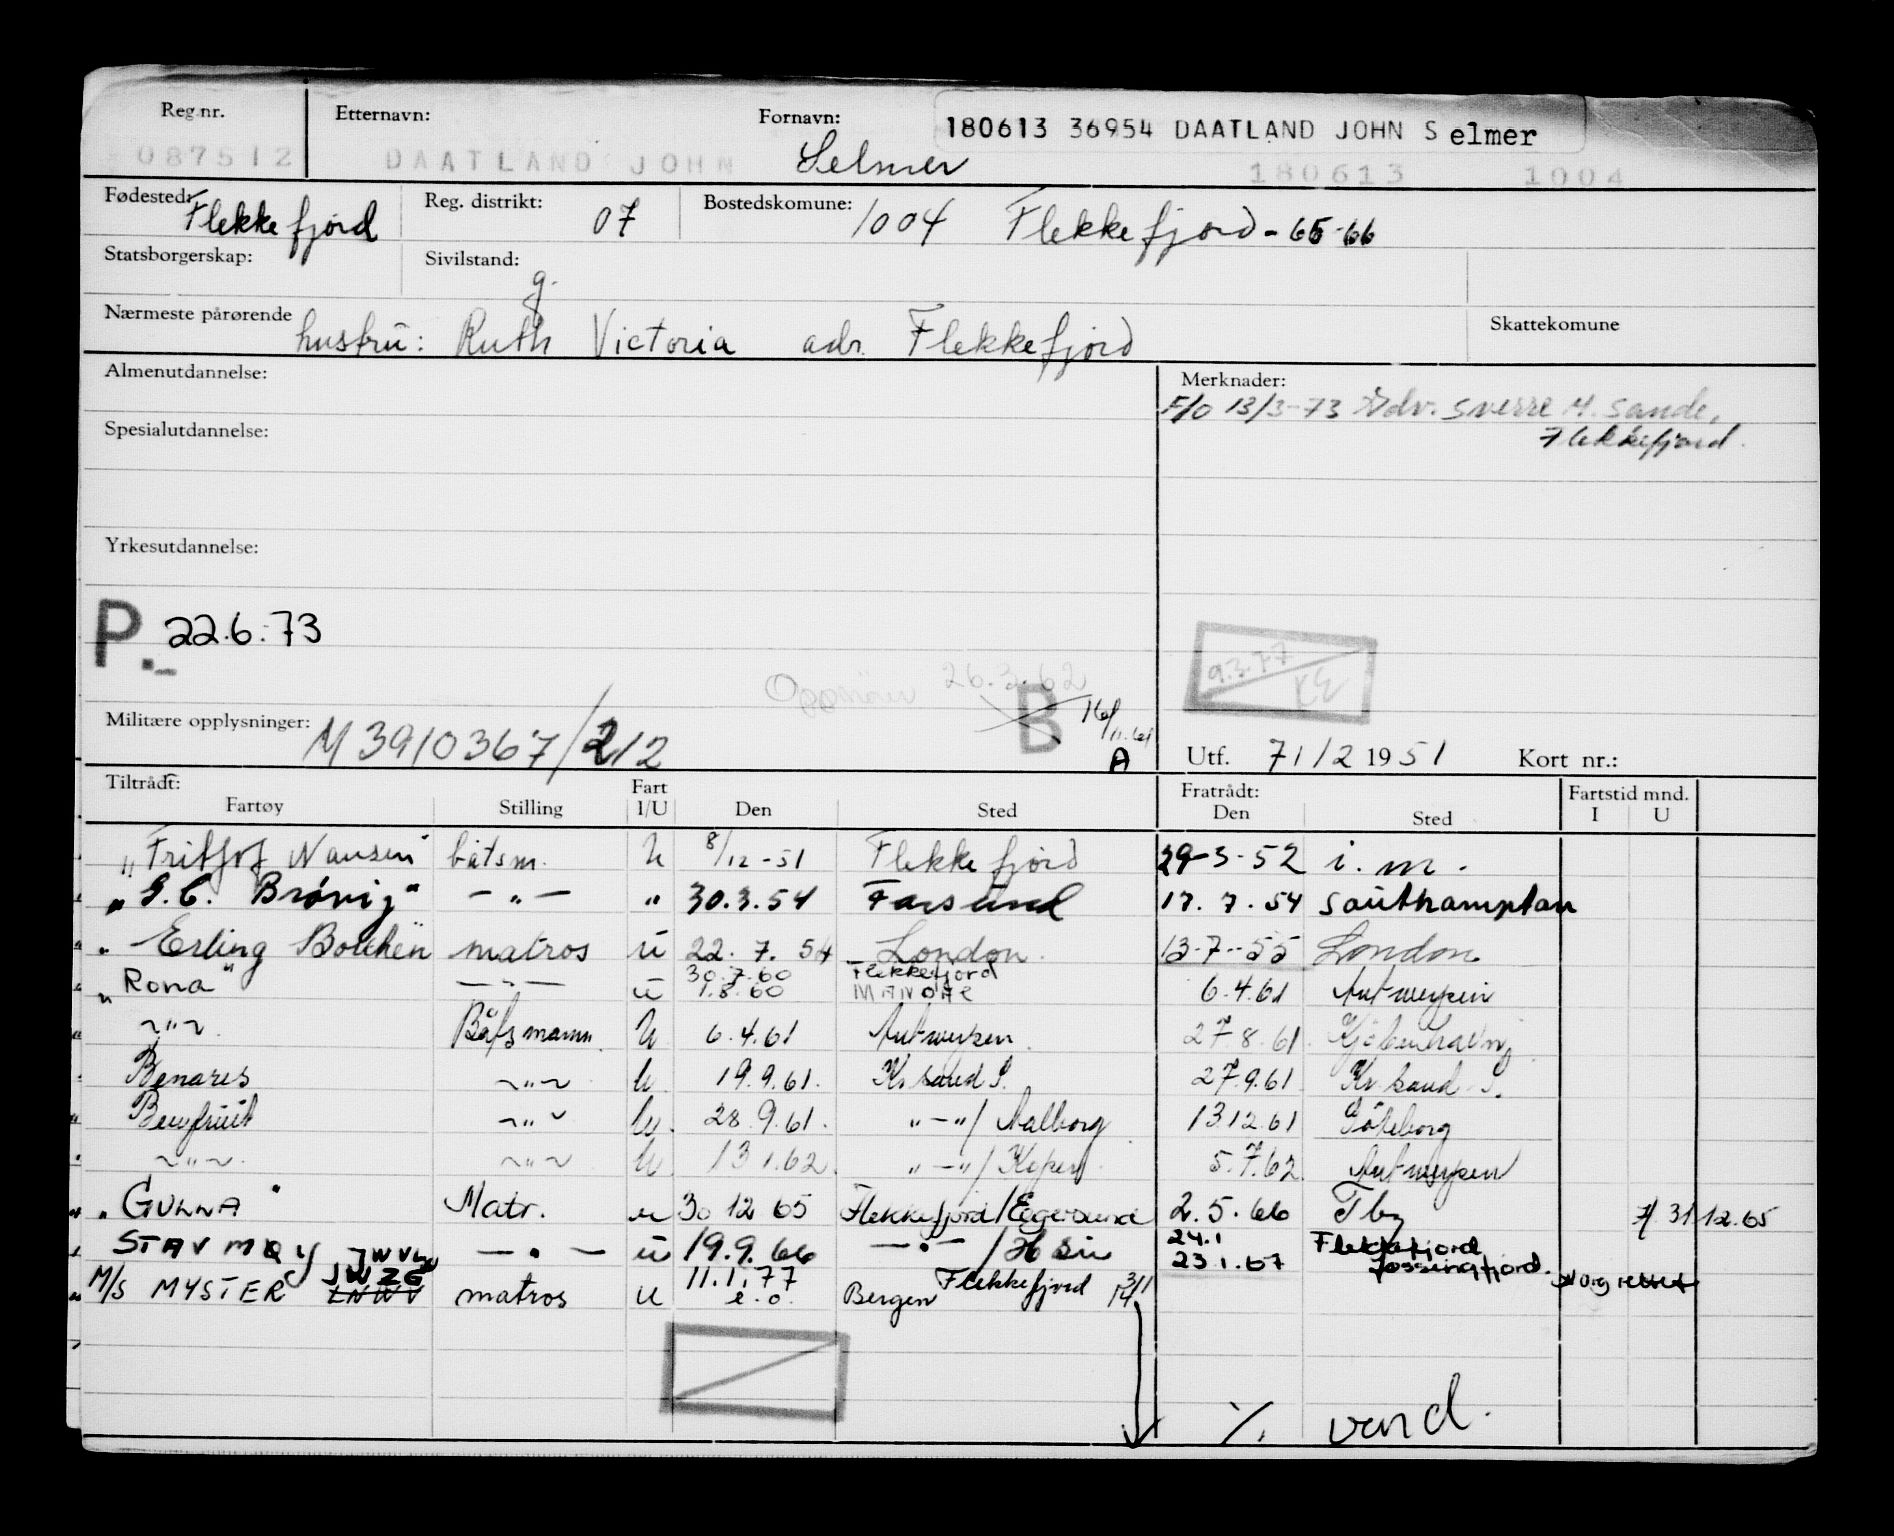 Reg.nr. Etternavn: Fornavn: 180613 36954 DAATLAND JOHN S elmer
087512 DAATLAND JOHN Selmer 180613 1004
Fødested: Flekkefjord Reg. distrikt: 07 Bostedskomune: 1004 Flekkefjord - 65-66
Statsborgerskap: Sivilstand: g.
Nærmeste pårørende hustru: Ruth Victoria adr. Flekkefjord Skattekomune
Almenutdannelse: Merknader:
F/O 13/3-73 Adv. Sverre M. Sande,
Flekkefjord.
Spesialutdannelse:
Yrkesutdannelse:
P. 22.6.73
9.3.77
26.3.62
B 16/11.61
Militære opplysninger: M 3910367/212 A Utf. 71/2 1951 Kort nr.:
Tiltrådt: Fart Fratrådt: Fartstid mnd.
Fartøy Stilling I/U Den Sted Den Sted I U
"Fritjof Nansen" båtsm. U 8/12-51 Flekkefjord 29-3-52 i.m.
"G.C. Brøvig" — " — " 30.3.54 Farsund 17.7.54 Southampton
" Erling Borthen matros U 22.7.54 London 13-7-55 London
"Rona" — " — U 30.7.60 Flekkefjord
1.8.60 6.4.61 Antwerpen
~ " ~ Båtsmann U 6.4.61 Antwerpen 27 8.61 Kjøbenhavn
Benares ~ " ~ U 19.9.61. Kr.sand S. 27.9.61 Kr.sand S.
~ " ~ U 28.9.61. " — " / Aalborg 13.12.61 Göteborg
~ " ~ ~ " ~ U 13 1.62 " — " / Kopen 5.7.62 Antwerpen
"GUNNA" Matr. U 30 12 65 Flekkefjord/Egersund 2.5.66 Tbg 31.12.65
STAVMØY JWVL — " — U 19.9.66 — " — 24.1 Flekkefjord
23.1.67 Jossingfjord. Norg rettet
M/S MYSTER JWZG LNWV matros U 11.1.77 e.o. Bergen Flekkefjord
./. vend.